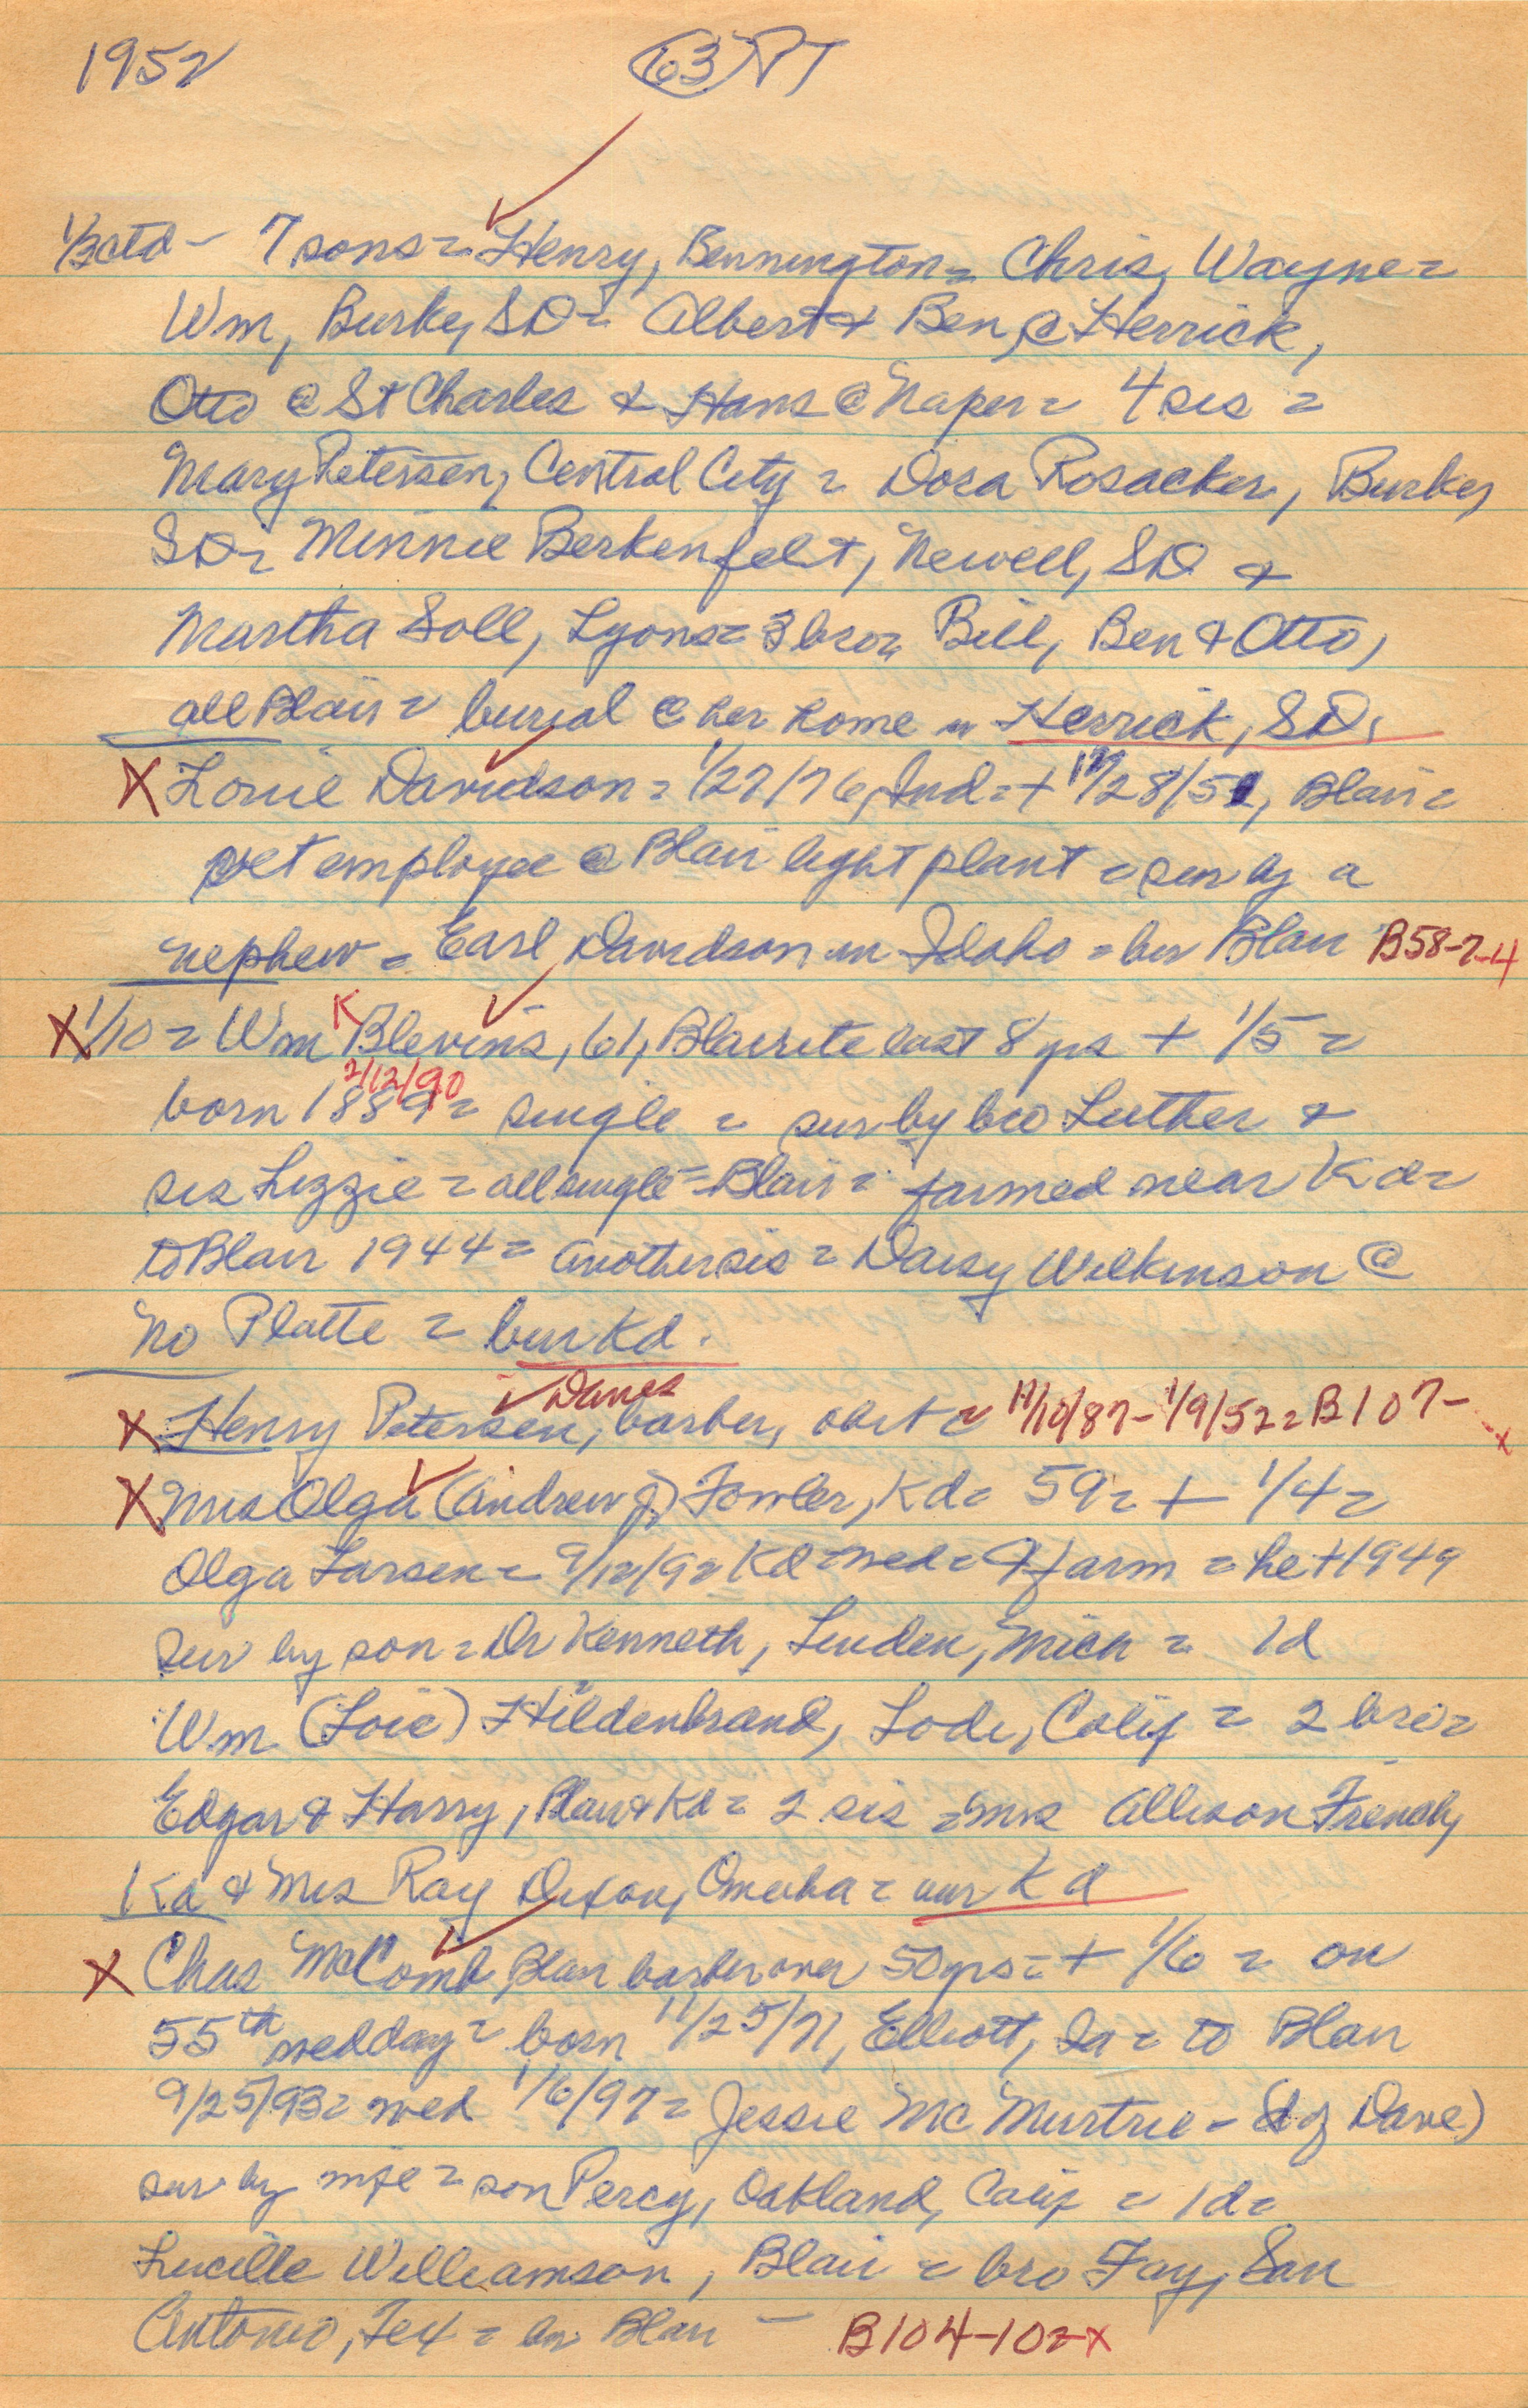 1952 63 PT
1/3 ctd - 7 sons = Henry, Bennington = Chris, Wayne =
Wm, Burke, SD = Albert & Ben, @ Herrick,
Otto @ St Charles & Hans @ Naper = 4 sis =
Mary Petersen, Central City = Dora Rosacker, Burke,
SD = Minnie Berkenfelt, Newell, SD &
Martha Soll, Lyons = 3 bro = Bill, Ben & Otto,
all Blair = burial @ her home in Herrick, SD.
X Louie Davidson = 1/27/76, Ind = + 12/28/51, Blair =
ret employee @ Blair light plant = sur by a
nephew = Earl Davidson in Idaho = bur Blair B58-7-4
X 1/10 = Wm K Blevins, 61, Blairite last 8 yrs + 1/5 =
2/12/90
born 1889 = single = sur by bro Luther &
sis Lizzie = all single = Blair = farmed near Kd =
to Blair 1944 = another sis = Daisy Wilkinson @
No Platte = bur Kd.
Danes
X Henry Petersen, barber, obit = 11/10/87 - 1/9/52 = B107- x
X Mrs Olga (Andrew J.) Fowler, Kd = 59 = + 1/4 =
Olga Larsen = 9/12/92 Kd = wed = farm = he + 1949
Sur by son = Dr Kenneth, Linden, Mich = 1d
Wm (Loie) Hildenbrand, Lodi, Calif = 2 bro =
Edgar & Harry, Blair & Kd = 2 sis = Mrs Allison French,
Kd & Mrs Ray Dixon, Omaha = bur Kd
X Chas McComb, Blair barber over 50 yrs = + 1/6 = on
55th wed day = born 11/25/71, Elliott, Ia = to Blair
9/25/93 = wed 1/6/97 = Jessie McMurtrie - (d of Dave)
sur by wife = son Percy, Oakland, Calif = 1d =
Lucille Williamson, Blair = bro Fay, San
Antonio, Tex = bur Blair - B104-102-x